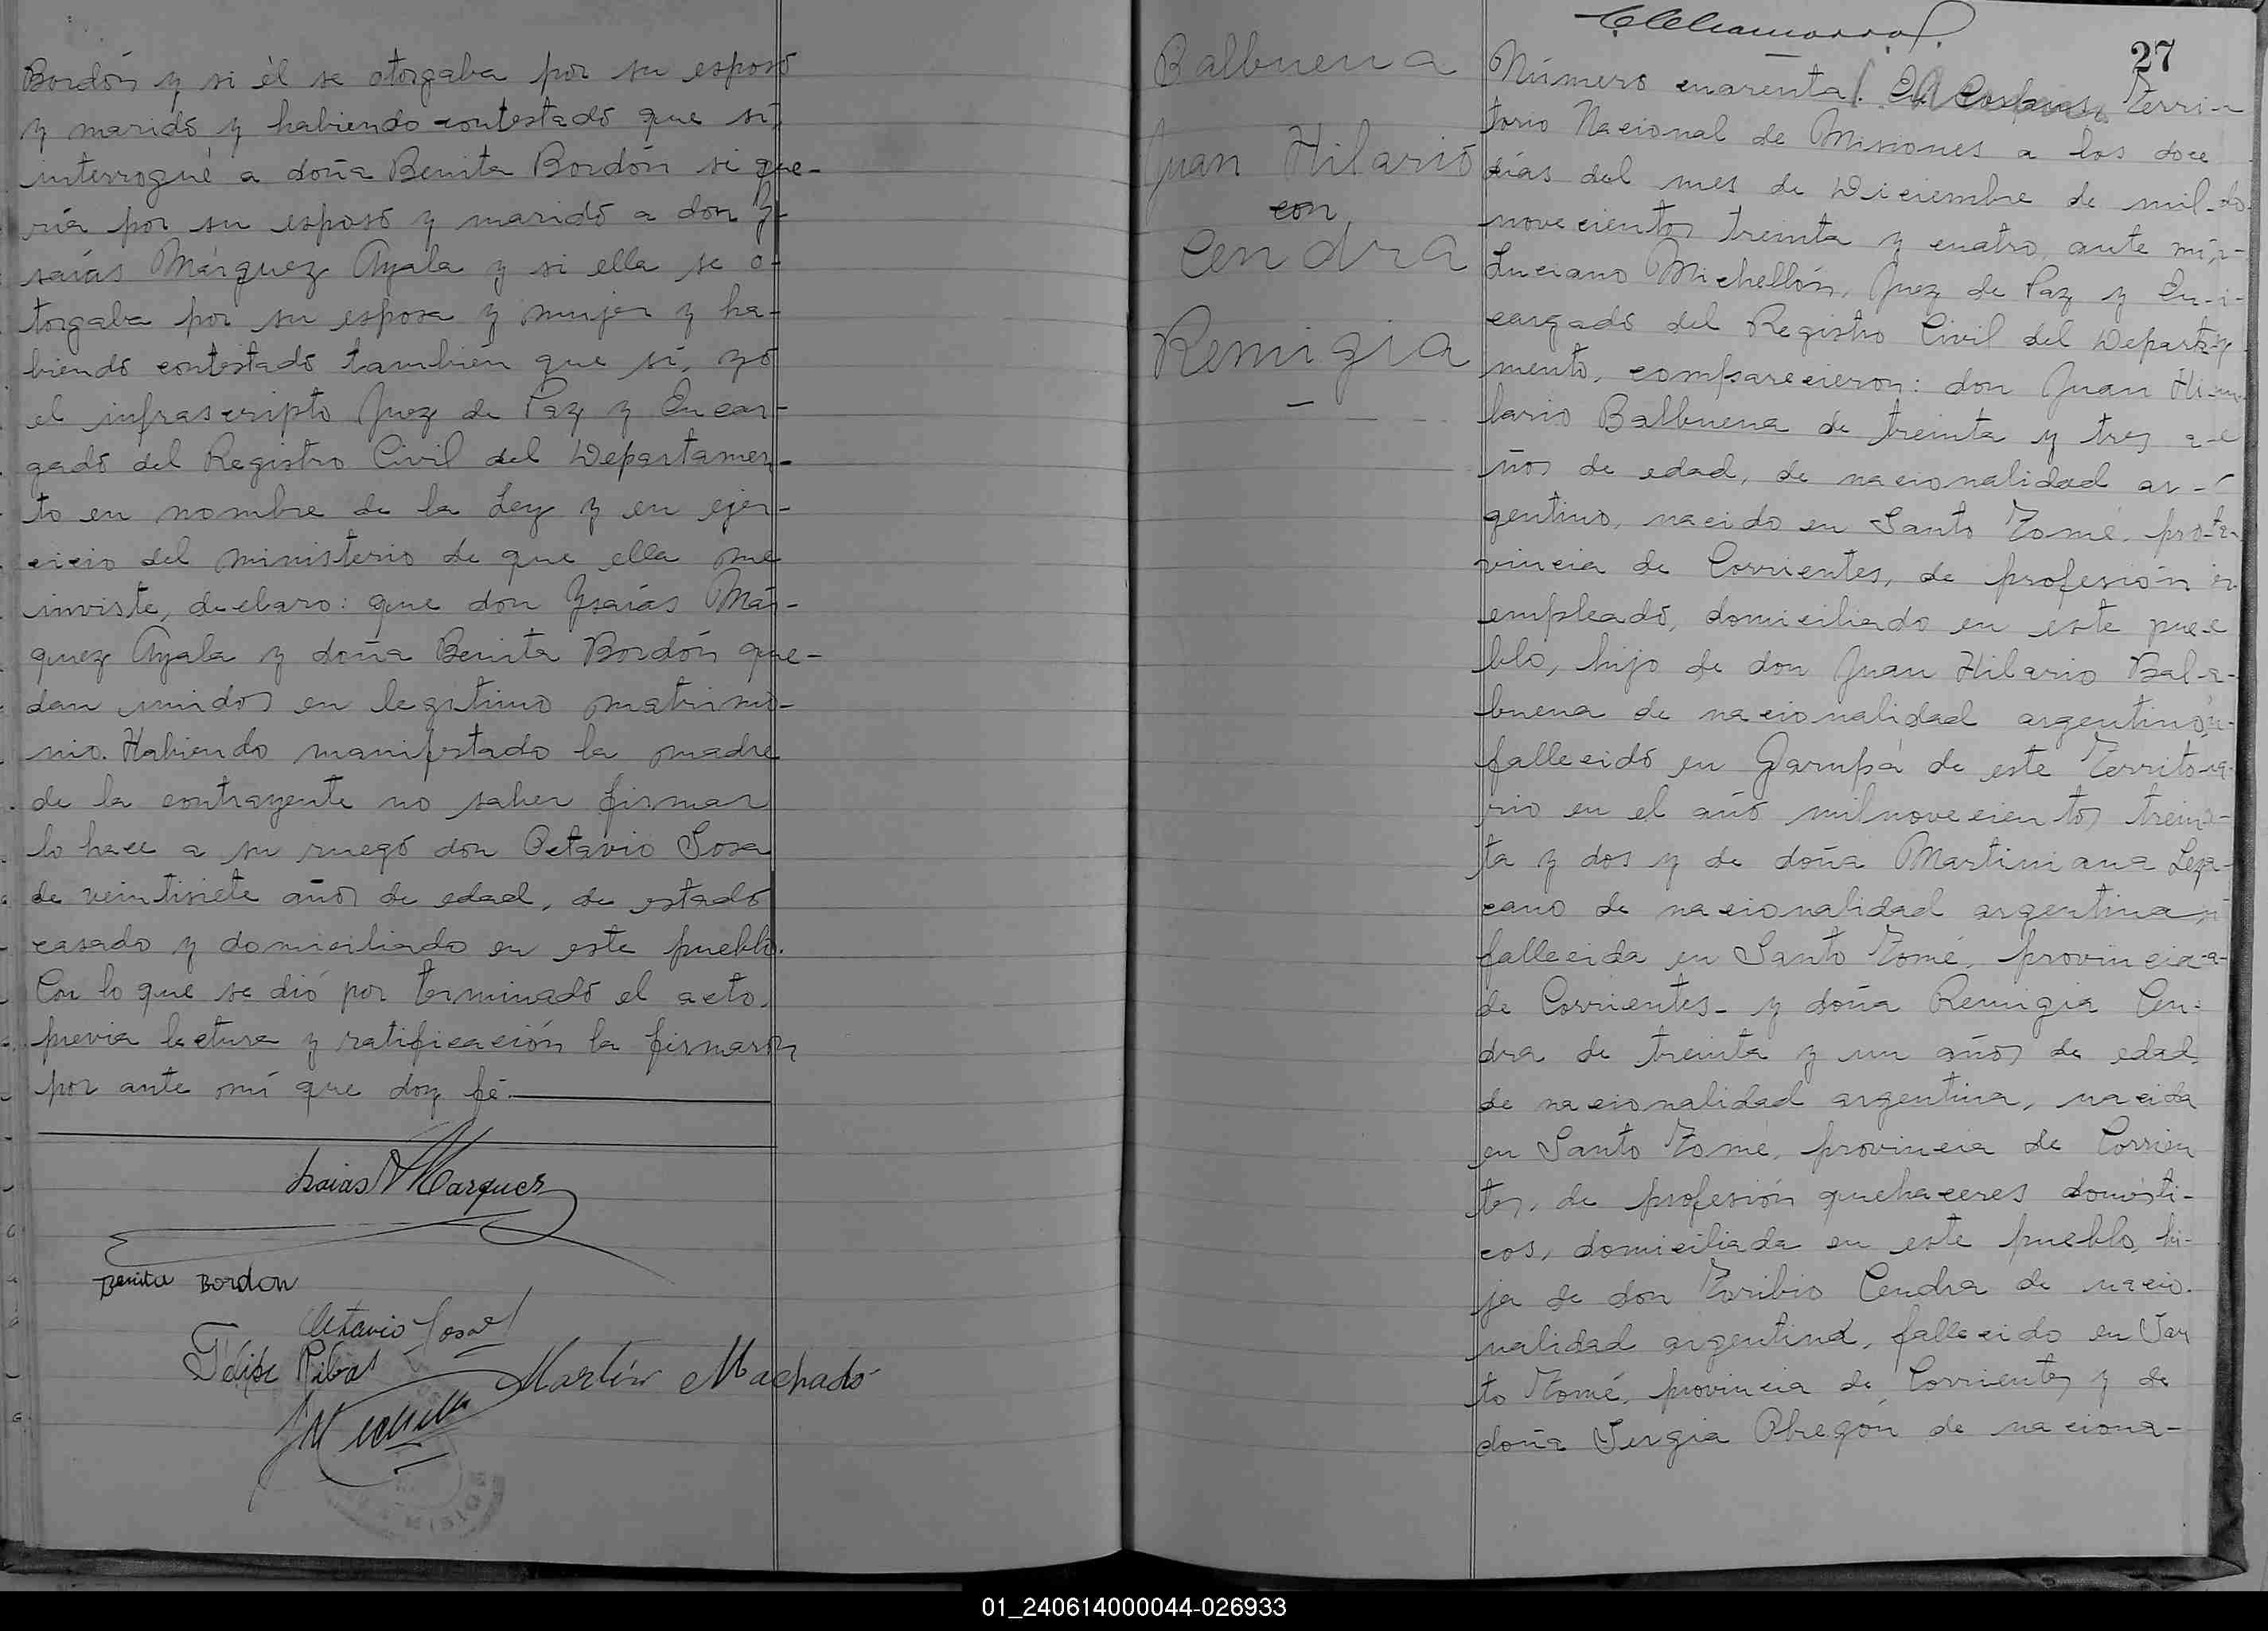 Bordón y si él se otorgaba por su esposo
y marido y habiendo contestado que sí,
interrogué a doña Benita Bordón si que-
ría por su esposo y marido a don Y-
saías Márquez Ayala y si ella se o-
torgaba por su esposa y mujer y ha-
biendo contestado también que sí, yo
el infrascripto Juez de Paz y Encar-
gado del Registro Civil del Departamen-
to en nombre de la Ley y en ejer-
cicio del ministerio de que ella me
inviste, declaro: que don Ysaías Már-
quez Ayala y doña Benita Bordón que-
dan unidos en legítimo matrimo-
nio. Habiendo manifestado la madre
de la contrayente no saber firmar
lo hace a su ruego don Octavio Sosa
de veintisiete años de edad, de estado
casado y domiciliado en este pueblo.
Con lo que se dió por terminado el acto,
previa lectura y ratificación la firmaron
por ante mí que doy fé.
Isaias Marquez
Benita Bordon
Octavio Sosa
Felipe Ribas
Martín Machado
27
Balbuena
Juan Hilario
con
Cendra
Remigia
Número cuarenta. En Terri-
torio Nacional de Misiones a los doce
días del mes de Diciembre de mil
novecientos treinta y cuatro, ante mí,
Luciano Michellón, Juez de Paz y En-
cargado del Registro Civil del Departa-
mento, comparecieron: don Juan Hi-
lario Balbuena de treinta y tres a-
ños de edad, de nacionalidad ar-
gentino, nacido en Santo Tomé, pro-
vincia de Corrientes, de profesión
empleado, domiciliado en este pue-
blo, hijo de don Juan Hilario Bal-
buena de nacionalidad argentino,
fallecido en Garupá de este Territo-
rio en el año mil novecientos trein-
ta y dos y de doña Martiniana Lez-
cano de nacionalidad argentina
fallecida en Santo Tomé, provincia
de Corrientes- y doña Remigia Cen-
dra de treinta y un años de edad,
de nacionalidad argentina, nacida
en Santo Tomé, provincia de Corrien
tes, de profesión quehaceres domésti-
cos, domiciliada en este pueblo, hi-
ja de don Toribio Cendra de nacio-
nalidad argentina, fallecido en San
to Tomé, provincia de Corrientes y de
doña Sergia Obregón de naciona-
01_240614000044-026933